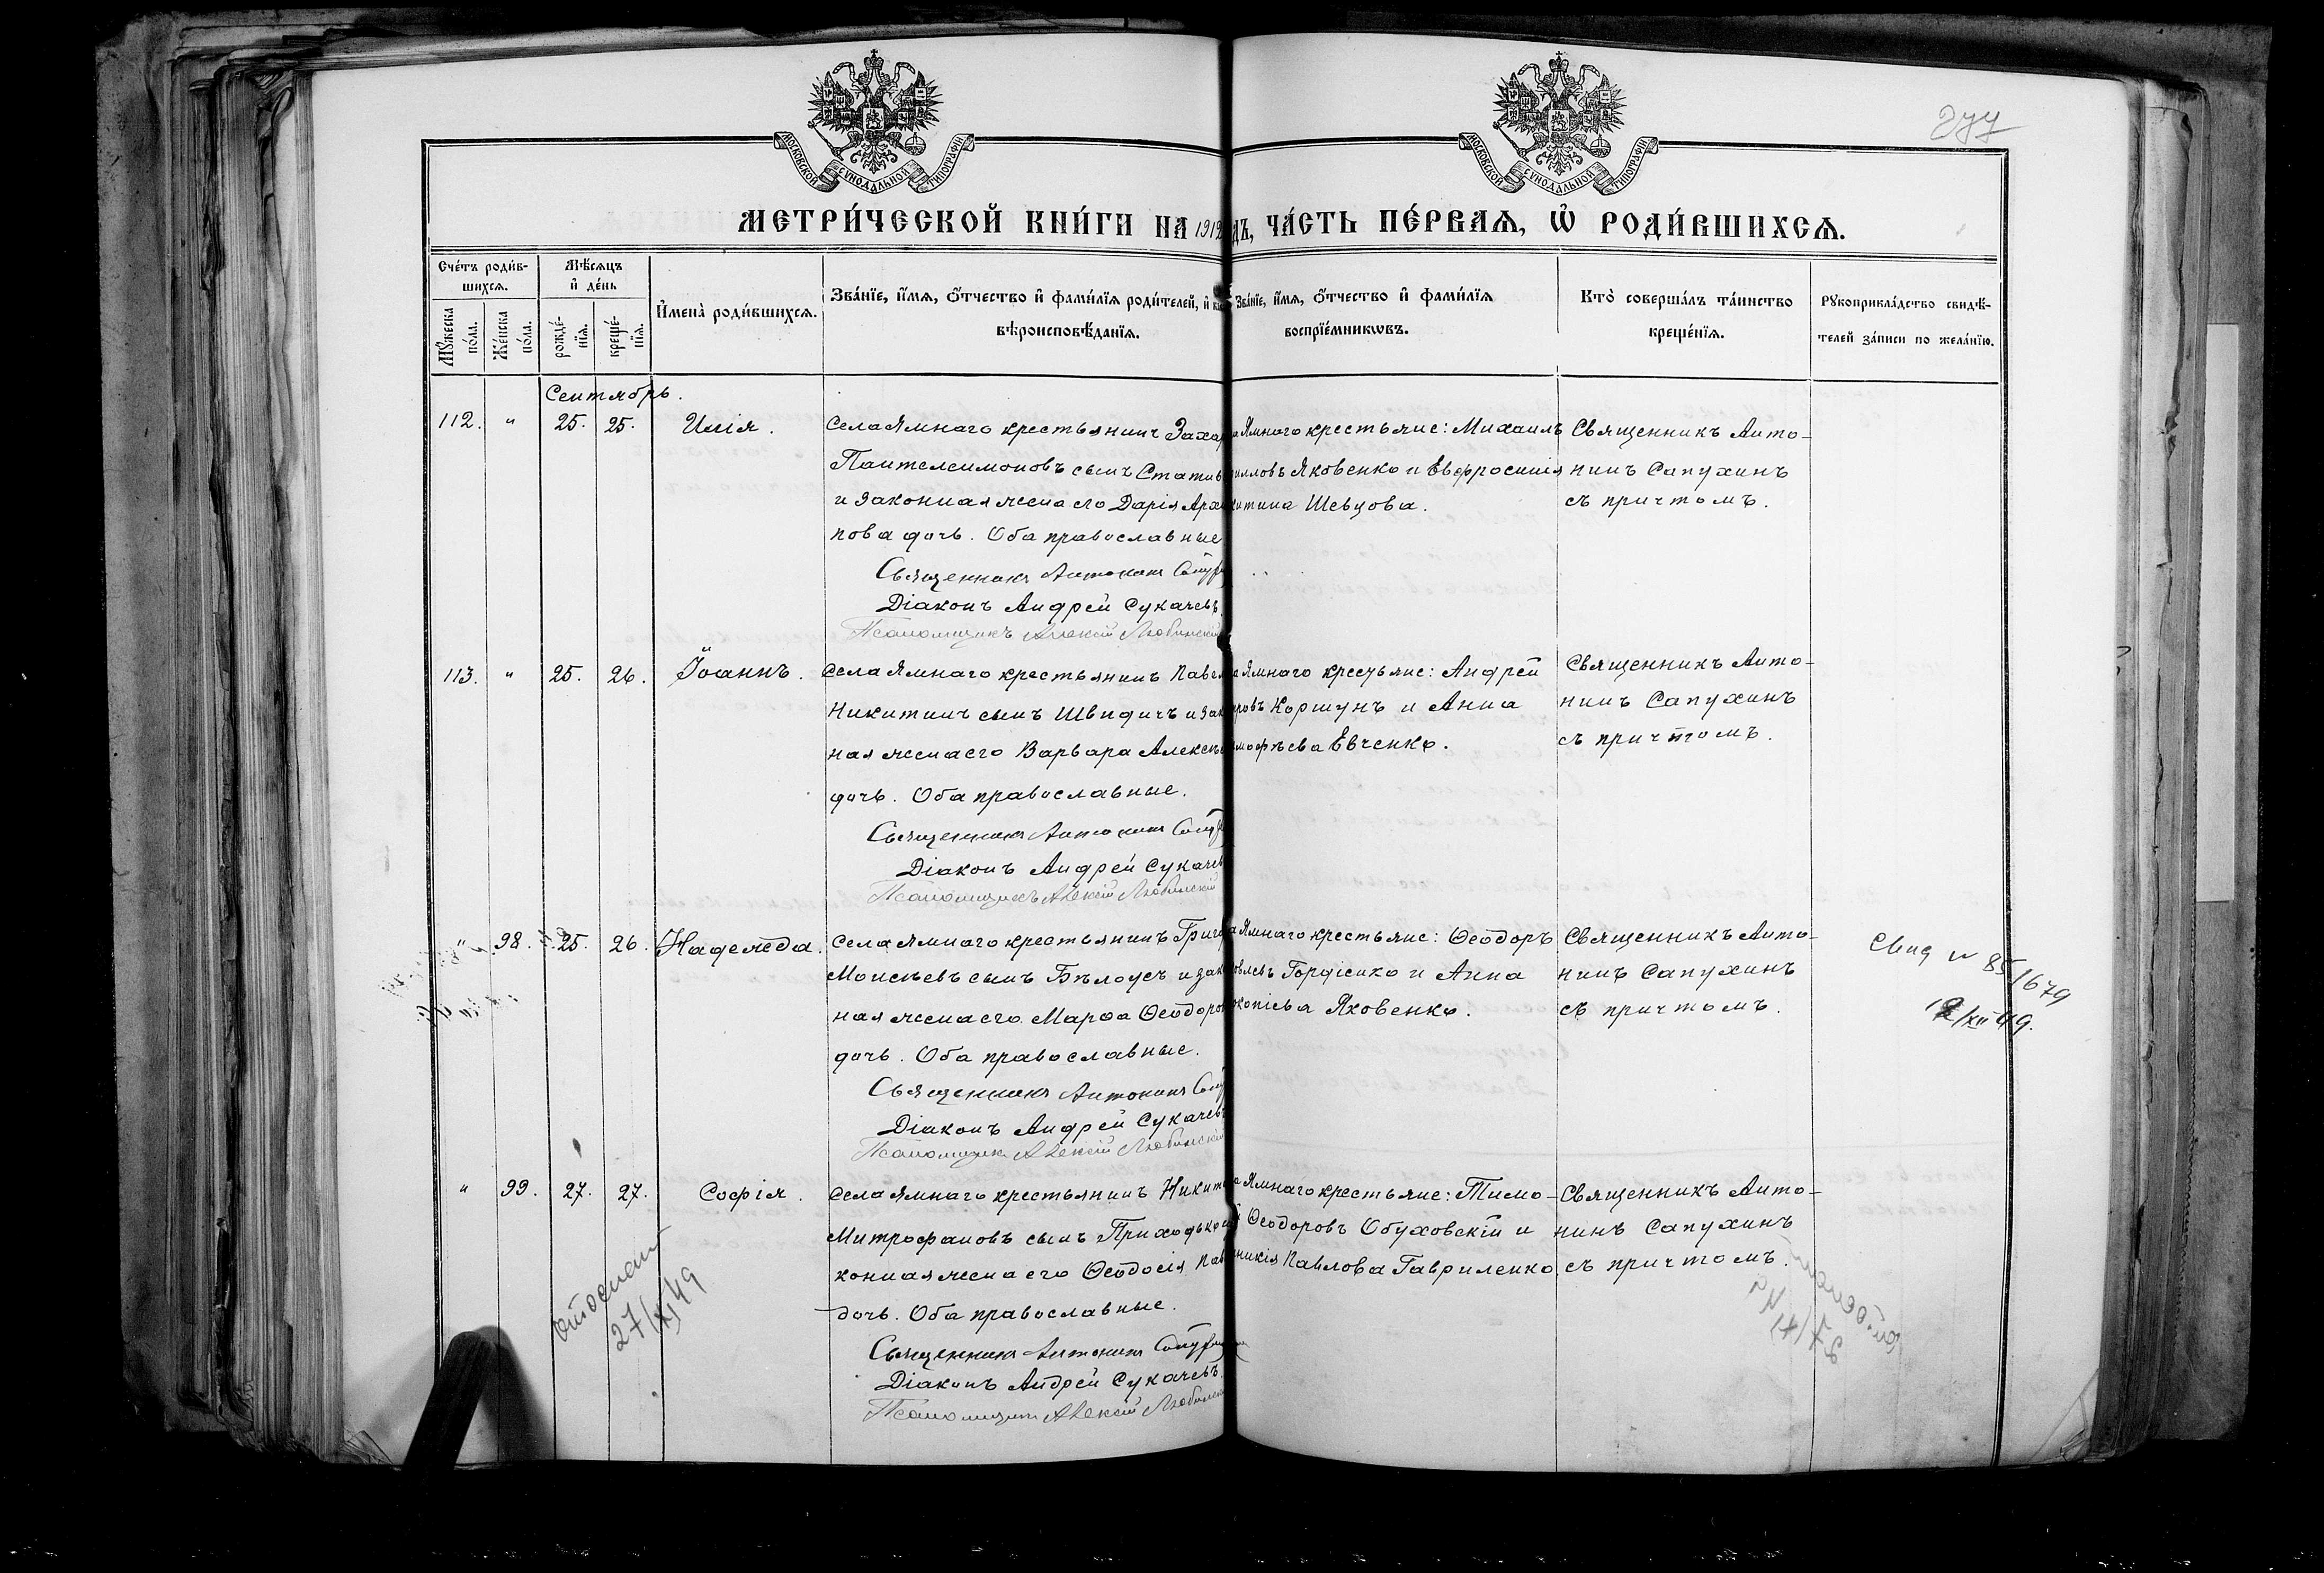 277
МОСКОВСКОЙ СѴНОДАЛЬНОЙ ТИПОГРАФІИ
МОСКОВСКОЙ СѴНОДАЛЬНОЙ ТИПОГРАФІИ
МЕТРИ́ЧЕСКОЙ КНИ́ГИ НА 1912
ДЪ, ЧА́СТЬ ПЕ́РВАѦ, Ѡ҆ РОДИ́ВШИХСѦ.
Сче́тъ роди́в-
шихсѧ.
Мꙋ́жеска
по́ла.
Же́нска
по́ла.
Мѣ́сѧцъ
и҆ де́нь
рожде́-
нїѧ.
креще́-
нїѧ.
И҆мена̀ роди́вшихсѧ.
Зва́нїе, и҆́мѧ, ѻ҆́тчество и҆ фами́лїѧ роди́телей, и҆
вѣроисповѣ́данїѧ.
Зва́нїе, и҆́мѧ, ѻ҆́тчество и҆ фами́лїѧ
воспрїе́мникѡвъ.
Кто̀ соверша́лъ та́инство
креще́нїѧ.
Рꙋкоприкла́дство свидѣ́-
телей за́писи по жела́нїю.
Сентябрь.
112. " 25. 25. Илія.
Села Ямнаго крестьянинъ Захар
Пантелеимоновъ сынъ Статив
и законная жена его Дарія Архи
пова дочь. Оба православные
Священникъ Антонинъ Сапух
Діаконъ Андрей Сукачевъ.
Псаломщикъ Алексій Любинскій
а Ямнаго крестьяне: Михаилъ
илловъ Яковенко и Евфросинія
китина Шевцова.
Священникъ Анто-
нинъ Сапухинъ
съ причтомъ.
113. " 25. 26. Іоаннъ.
Села Ямнаго крестьянинъ Павел
Никитинъ сынъ Швидичъ и зак
ная жена его Варвара Алексѣе
дочь. Оба православные.
Священникъ Антонинъ Сапух
Діаконъ Андрей Сукачев
Псаломщикъ Алексій Любинскій
а Ямнаго крестьяне: Андрей
ровъ Коршунъ и Анна
мофѣева Евченко.
Священникъ Анто-
нинъ Сапухинъ
съ причтомъ.
" 98. 25. 26. Надежда.
Села Ямнаго крестьянинъ Григо
Моисѣевъ сынъ Бѣлоусъ и зак
ная жена его Марѳа Ѳеодоро
дочь. Оба православные.
Священникъ Антонинъ Сап
Діаконъ Андрей Сукачев
Псаломщикъ Алексій Любинскій
а Ямнаго крестьяне: Ѳеодоръ
овлевъ Гордіенко и Анна
окопіева Яковенко.
Священникъ Анто-
нинъ Сапухинъ
съ причтомъ.
Свид N 85/679
12/XII 49.
" 99. 27. 27. Софія.
Села Ямнаго крестьянинъ Никит
Митрофановъ сынъ Приходько и
конная жена его Ѳеодосія Пав
дочь. Оба православные.
Священникъ Антонинъ Сапухин
Діаконъ Андрей Сукачевъ.
Псаломщикъ Алексій Любинск
а Ямнаго крестьяне: Тимо-
й Ѳеодоровъ Обуховскій и
никія Павлова Гавриленко.
Священникъ Анто-
нинъ Сапухинъ
съ причтомъ.
27/XI 49